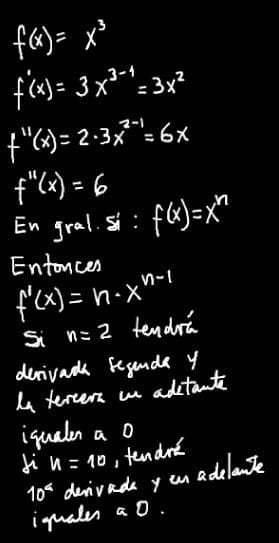 f(x) = x³
f'(x) = 3x³⁻¹ = 3x²
f''(x) = 2·3x²⁻¹ = 6x
f''(x) = 6
En gral. Si : f(x)=xⁿ
Entonces
f'(x) = n·xⁿ⁻¹
Si n=2 tendrá
derivada segunda y
la tercera en adelante
iguales a 0
Si n=10, tendrá
10ª derivada y en adelante
iguales a 0.